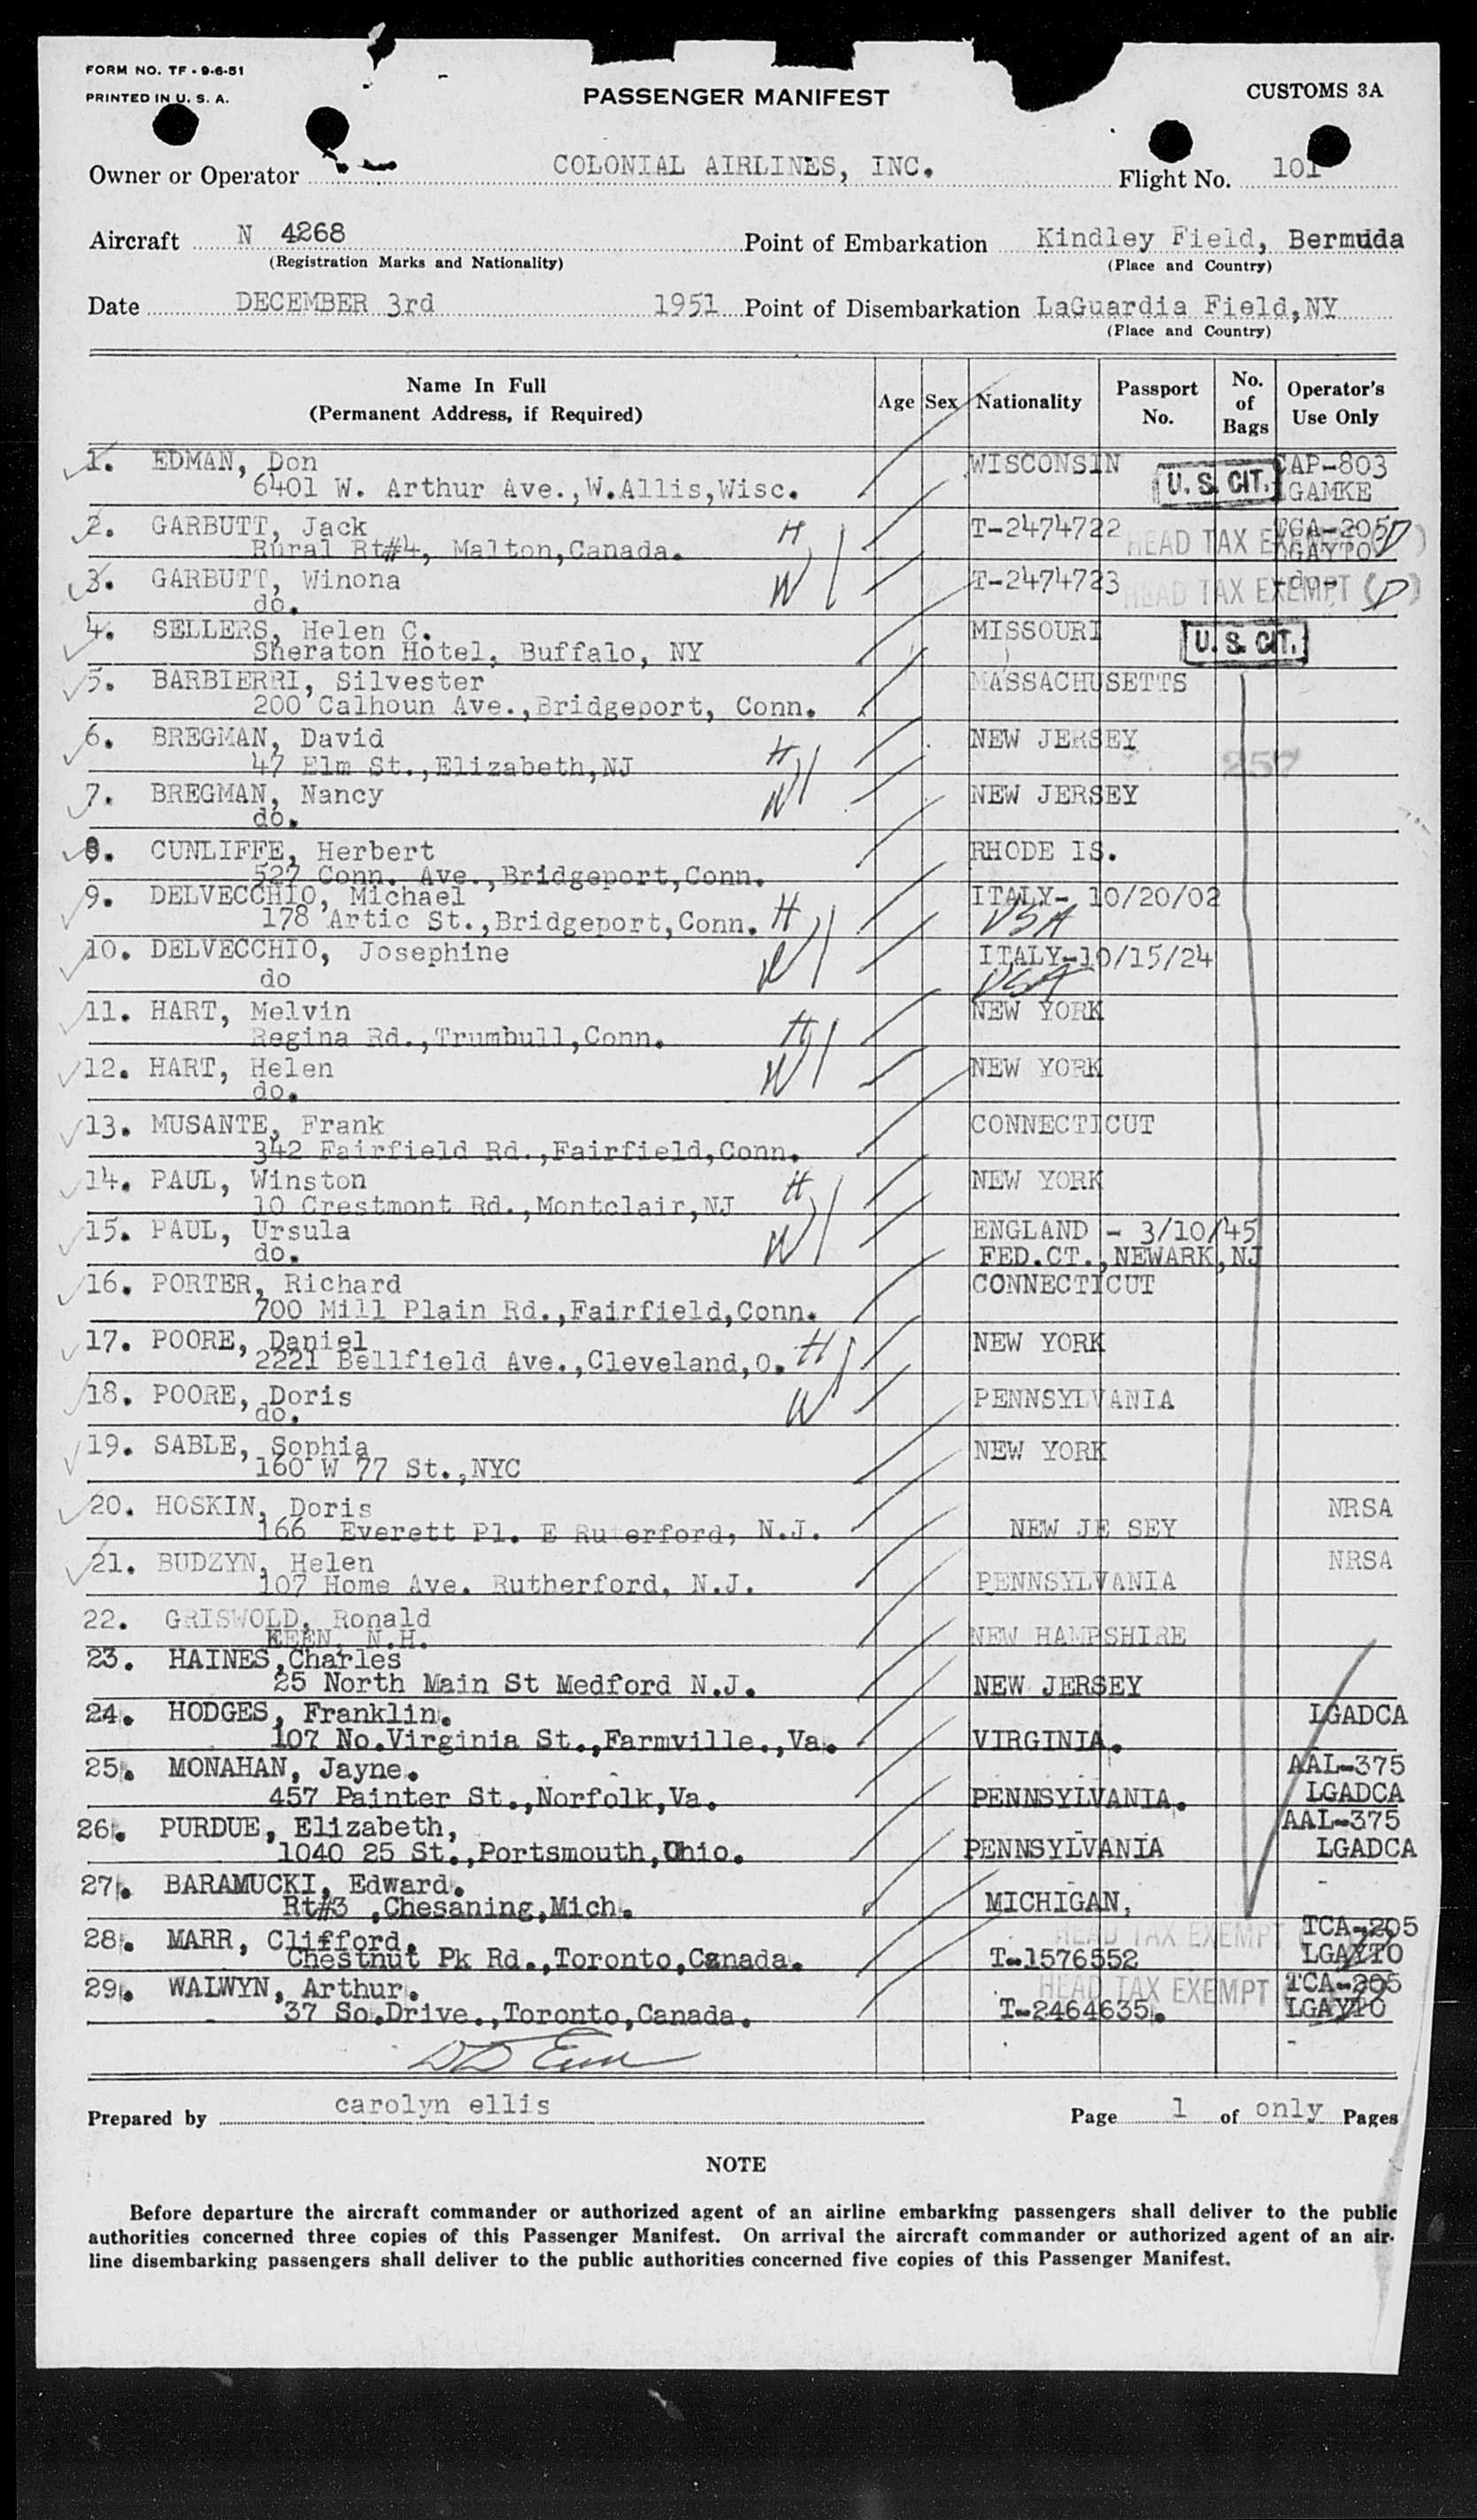 FORM NO. TF - 9-6-51
PRINTED IN U. S. A.
PASSENGER MANIFEST
CUSTOMS 3A
Owner or Operator COLONIAL AIRLINES, INC. Flight No. 101
Aircraft N 4268 Point of Embarkation Kindley Field, Bermuda
(Registration Marks and Nationality) (Place and Country)
Date DECEMBER 3rd 1951 Point of Disembarkation LaGuardia Field,NY
(Place and Country)
Name In Full (Permanent Address, if Required) Age Sex Nationality Passport No. No. of Bags Operator's Use Only
1. EDMAN, Don WISCONSIN U. S. CIT. CAP-803
6401 W. Arthur Ave.,W.Allis,Wisc. LGAMKE
2. GARBUTT, Jack H T-2474722 HEAD TAX EXEMPT (D) TCA-205
Rural Rt#4, Malton,Canada. LGAYTO
3. GARBUTT, Winona W T-2474723 HEAD TAX EXEMPT (D) -do-
do.
4. SELLERS, Helen C. MISSOURI U. S. CIT.
Sheraton Hotel, Buffalo, NY
5. BARBIERRI, Silvester MASSACHUSETTS
200 Calhoun Ave.,Bridgeport, Conn.
6. BREGMAN, David H NEW JERSEY
47 Elm St.,Elizabeth,NJ 257
7. BREGMAN, Nancy W NEW JERSEY
do.
8. CUNLIFFE, Herbert RHODE IS.
527 Conn. Ave.,Bridgeport,Conn.
9. DELVECCHIO, Michael ITALY- 10/20/02
178 Artic St.,Bridgeport,Conn. H USA
10. DELVECCHIO, Josephine W ITALY-10/15/24
do USA
11. HART, Melvin H NEW YORK
Regina Rd.,Trumbull,Conn.
12. HART, Helen W NEW YORK
do.
13. MUSANTE, Frank CONNECTICUT
342 Fairfield Rd.,Fairfield,Conn.
14. PAUL, Winston H NEW YORK
10 Crestmont Rd.,Montclair,NJ
15. PAUL, Ursula W ENGLAND - 3/10/45
do. FED.CT.,NEWARK,NJ
16. PORTER, Richard CONNECTICUT
700 Mill Plain Rd.,Fairfield,Conn.
17. POORE, Daniel H NEW YORK
2221 Bellfield Ave.,Cleveland,O.
18. POORE, Doris W PENNSYLVANIA
do.
19. SABLE, Sophia NEW YORK
160 W 77 St.,NYC
20. HOSKIN, Doris NRSA
166 Everett Pl. E Ruterford, N.J. NEW JE SEY
21. BUDZYN, Helen NRSA
107 Home Ave. Rutherford, N.J. PENNSYLVANIA
22. GRISWOLD, Ronald
KEEN, N.H. NEW HAMPSHIRE
23. HAINES,Charles
25 North Main St Medford N.J. NEW JERSEY
24. HODGES, Franklin. LGADCA
107 No.Virginia St.,Farmville.,Va. VIRGINIA.
25. MONAHAN, Jayne. AAL-375
457 Painter St.,Norfolk,Va. PENNSYLVANIA. LGADCA
26. PURDUE, Elizabeth, AAL-375
1040 25 St.,Portsmouth,Ohio. PENNSYLVANIA LGADCA
27. BARAMUCKI, Edward.
Rt#3 ,Chesaning,Mich. MICHIGAN,
28. MARR, Clifford. HEAD TAX EXEMPT TCA-205
Chestnut Pk Rd.,Toronto,Canada. T-1576552 LGAYTO
29. WALWYN, Arthur. HEAD TAX EXEMPT TCA-205
37 So.Drive.,Toronto,Canada. T-2464635. LGAYTO
Prepared by carolyn ellis Page 1 of only Pages
NOTE
Before departure the aircraft commander or authorized agent of an airline embarking passengers shall deliver to the public
authorities concerned three copies of this Passenger Manifest. On arrival the aircraft commander or authorized agent of an air-
line disembarking passengers shall deliver to the public authorities concerned five copies of this Passenger Manifest.